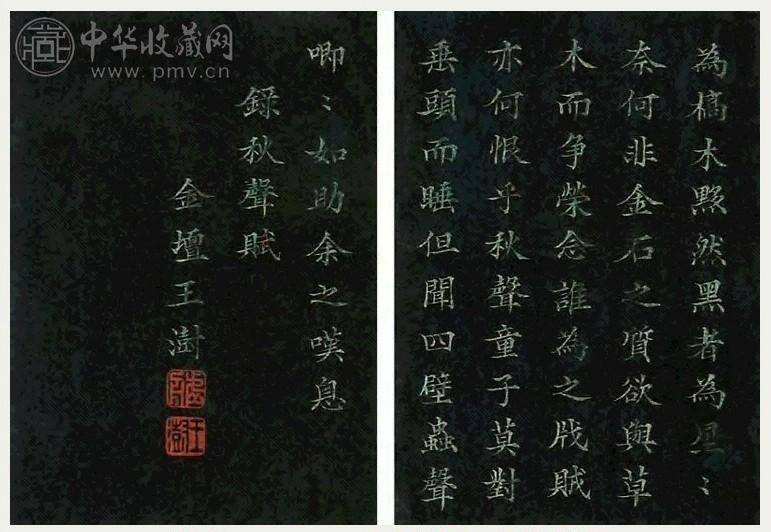 為槁木黟然黑者為星〻
奈何非金石之質欲與草
木而争榮念誰為之戕賊
亦何恨乎秋聲童子莫對
垂頭而睡但聞四壁蟲聲
唧〻如助余之嘆息
錄秋聲賦
金壇王澍
王澍
中华收藏网
www.pmv.cn